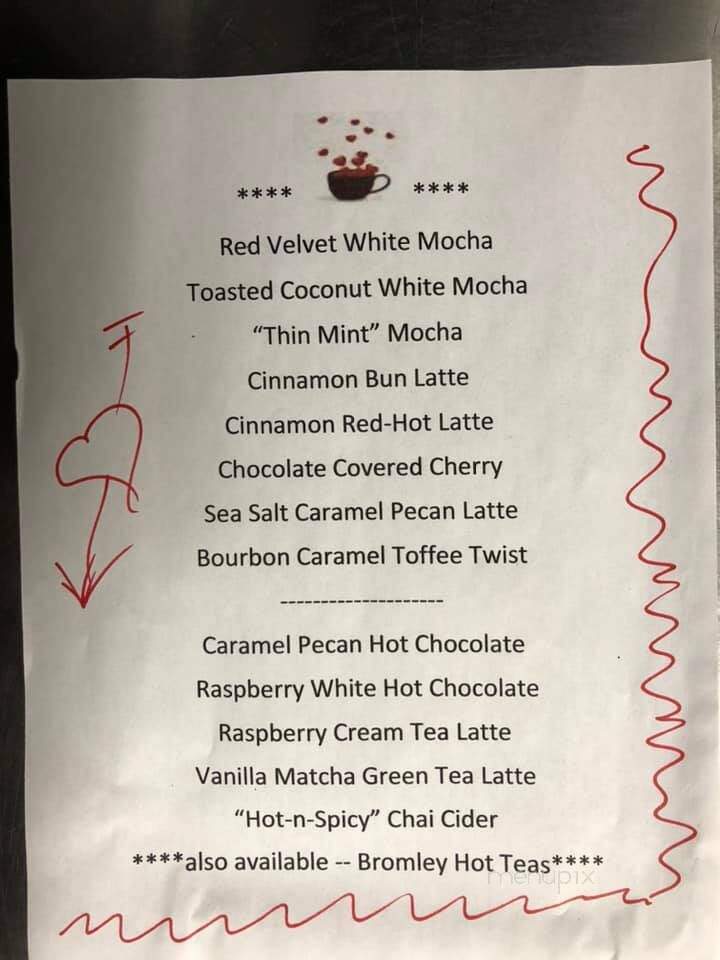 **** ****
Red Velvet White Mocha
Toasted Coconut White Mocha
“Thin Mint” Mocha
Cinnamon Bun Latte
Cinnamon Red-Hot Latte
Chocolate Covered Cherry
Sea Salt Caramel Pecan Latte
Bourbon Caramel Toffee Twist
--------------------
Caramel Pecan Hot Chocolate
Raspberry White Hot Chocolate
Raspberry Cream Tea Latte
Vanilla Matcha Green Tea Latte
“Hot-n-Spicy” Chai Cider
****also available -- Bromley Hot Teas****
menupix